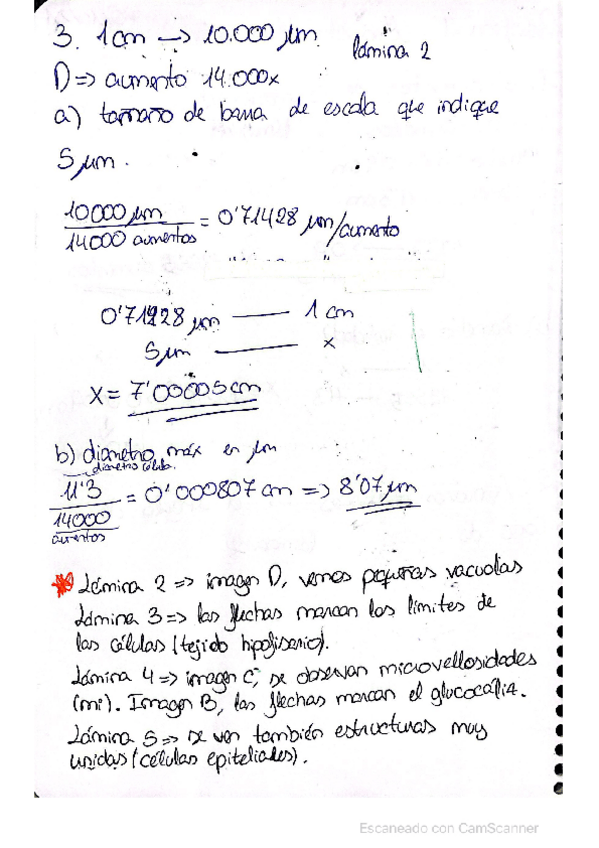 3. 1cm → 10.000 µm.
Lámina 2
D => aumento 14.000x
a) tamaño de barra de escala que indique
5 µm.
10000 µm / 14000 aumentos = 0'71428 µm/aumento
0'71428 µm — 1 cm
5µm — x
x = 7'00005 cm
b) diametro máx en µm
diametro célula.
11'3 / 14000 aumentos = 0'000807 cm => 8'07 µm
* Lámina 2 => imagen D, vemos pequeñas vacuolas
Lámina 3 => las flechas marcan los límites de
las células (tejido hipofisario).
Lámina 4 => imagen C, se observan microvellosidades
(mi). Imagen B, las flechas marcan el glucocálix.
Lámina 5 => se ven también estructuras muy
unidas (células epiteliales).
Escaneado con CamScanner